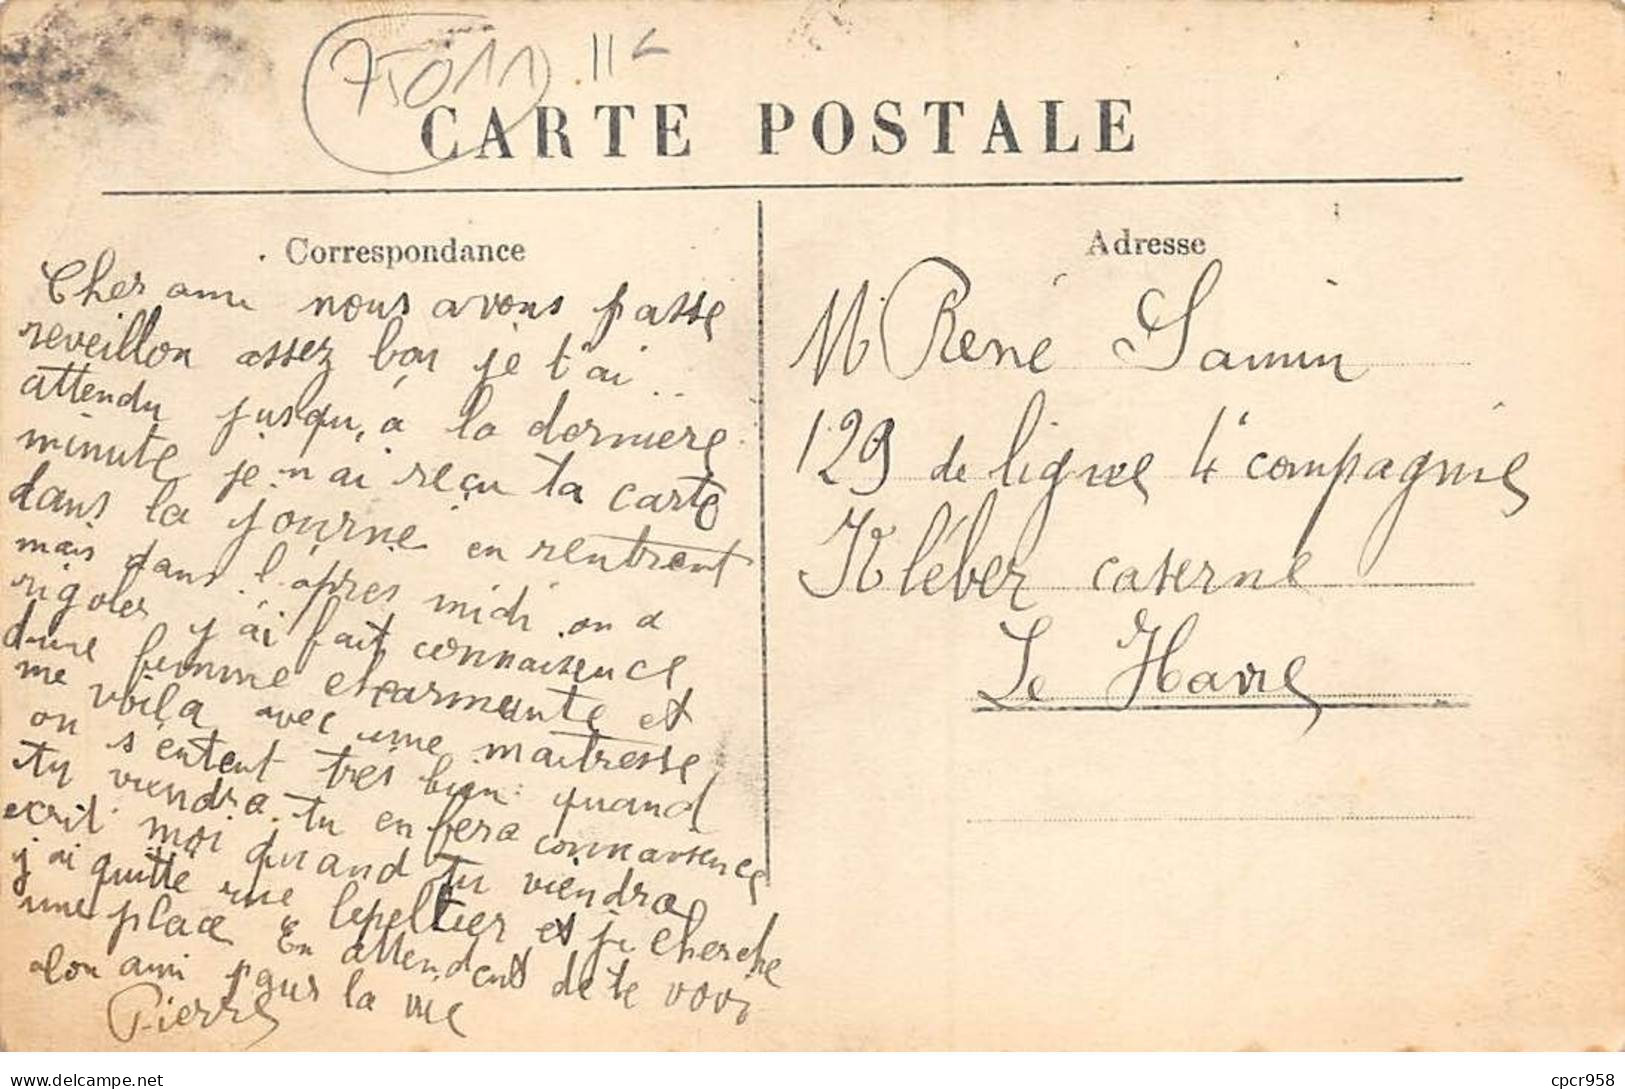 75011 II
CARTE POSTALE
Correspondance
Adresse
Cher ami nous avons passe
reveillon assez bon je t'ai
attendu jusqu'a la derniere
minute je n'ai reçu ta carte
dans la journé en rentrent
mais dans l'apres midi on a
rigoler j'ai fait connaisence
d'une femme et
me voila avec une maitresse
on s'entent tres bien quand
tu viendra tu en fera connaisence
ecrit moi quand tu viendra
j'ai quitté rue lepeltier et je cherche
une place En attendent de te voir
ton ami pour la vie
Pierre
M René Samin
129 de ligne 4e compagnie
Kléber caserne
Le Havre
cpcr958